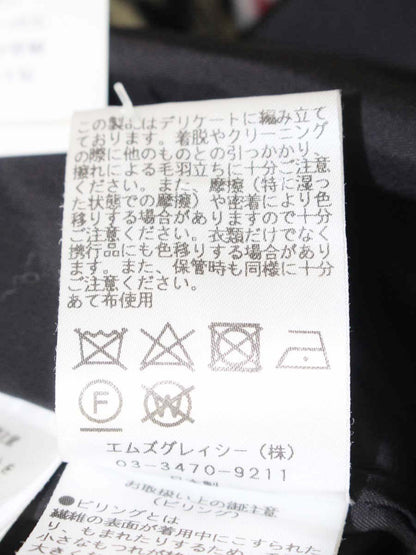 この製品はデリケートに編み立て
ております。着脱やクリーニング
の際に他のものとの引っかかり、
擦れによる毛羽立ちに十分ご注意
ください。また、摩擦(特に湿っ
た状態での摩擦)や密着により色
移りする場合がありますので十分
ご注意ください。衣類だけでなく
携行品にも色移りする場合があり
ます。また、保管時も同様に十分
ご注意ください。
あて布使用
F
W
エムズグレイシー(株)
03-3470-9211
日本製
お取扱い上の御注意
(ピリング)
●ピリングとは
繊維の表面が着用中にこすられた
り、もまれたりするため
小さなもつれが